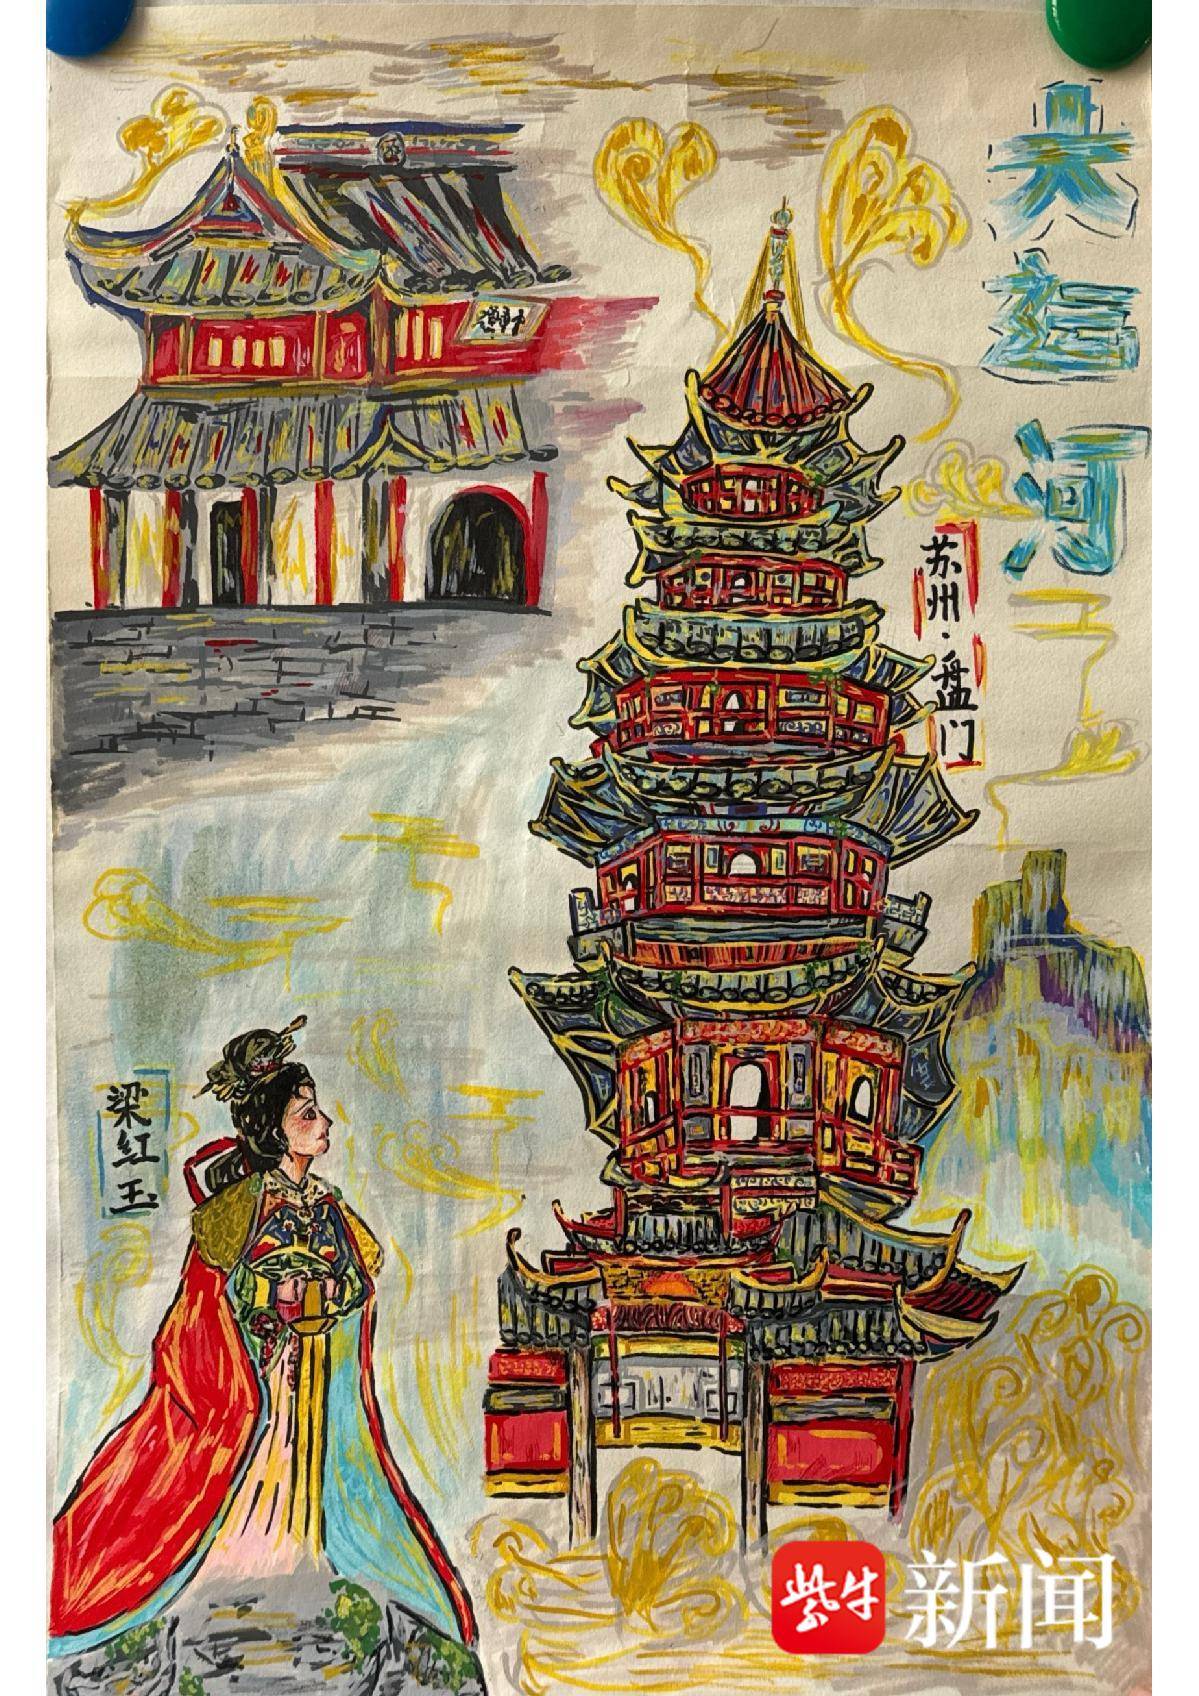 大运河
苏州·盘门
梁红玉
紫牛新闻